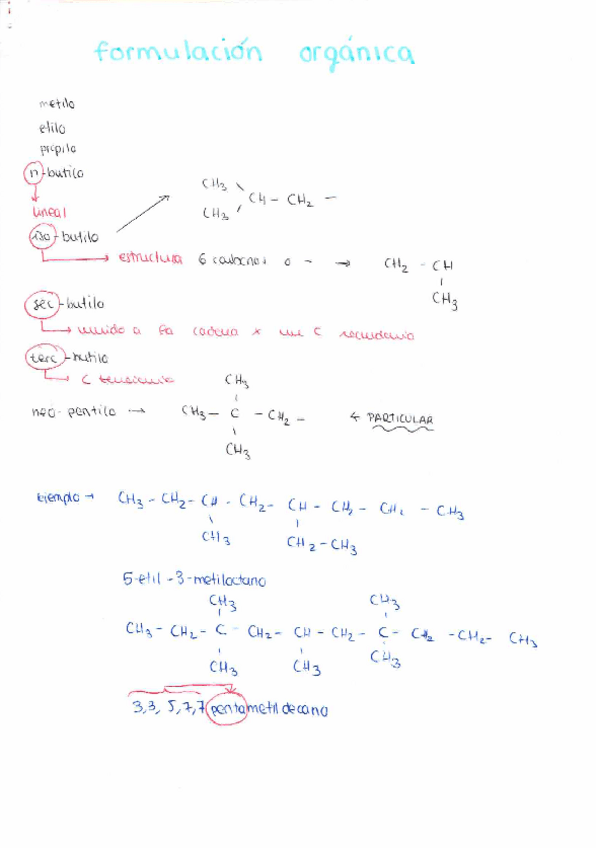 formulación orgánica
metilo
etilo
propilo
n-butilo
lineal
CH3
CH - CH2 -
CH3
iso-butilo
estructura 6 carbonos o - → CH2 - CH
CH3
sec-butilo
unido a la cadena x un C secundario
terc-butilo
C terciario
CH3
neo-pentilo → CH3 - C - CH2 - PARTICULAR
CH3
ejemplo → CH3 - CH2 - CH - CH2 - CH - CH2 - CH2 - CH3
CH3 CH2 - CH3
5-etil-3-metiloctano
CH3 CH3
CH3 - CH2 - C - CH2 - CH - CH2 - C - CH2 - CH2 - CH3
CH3 CH3 CH3
3,3,5,7,7 pentametildecano